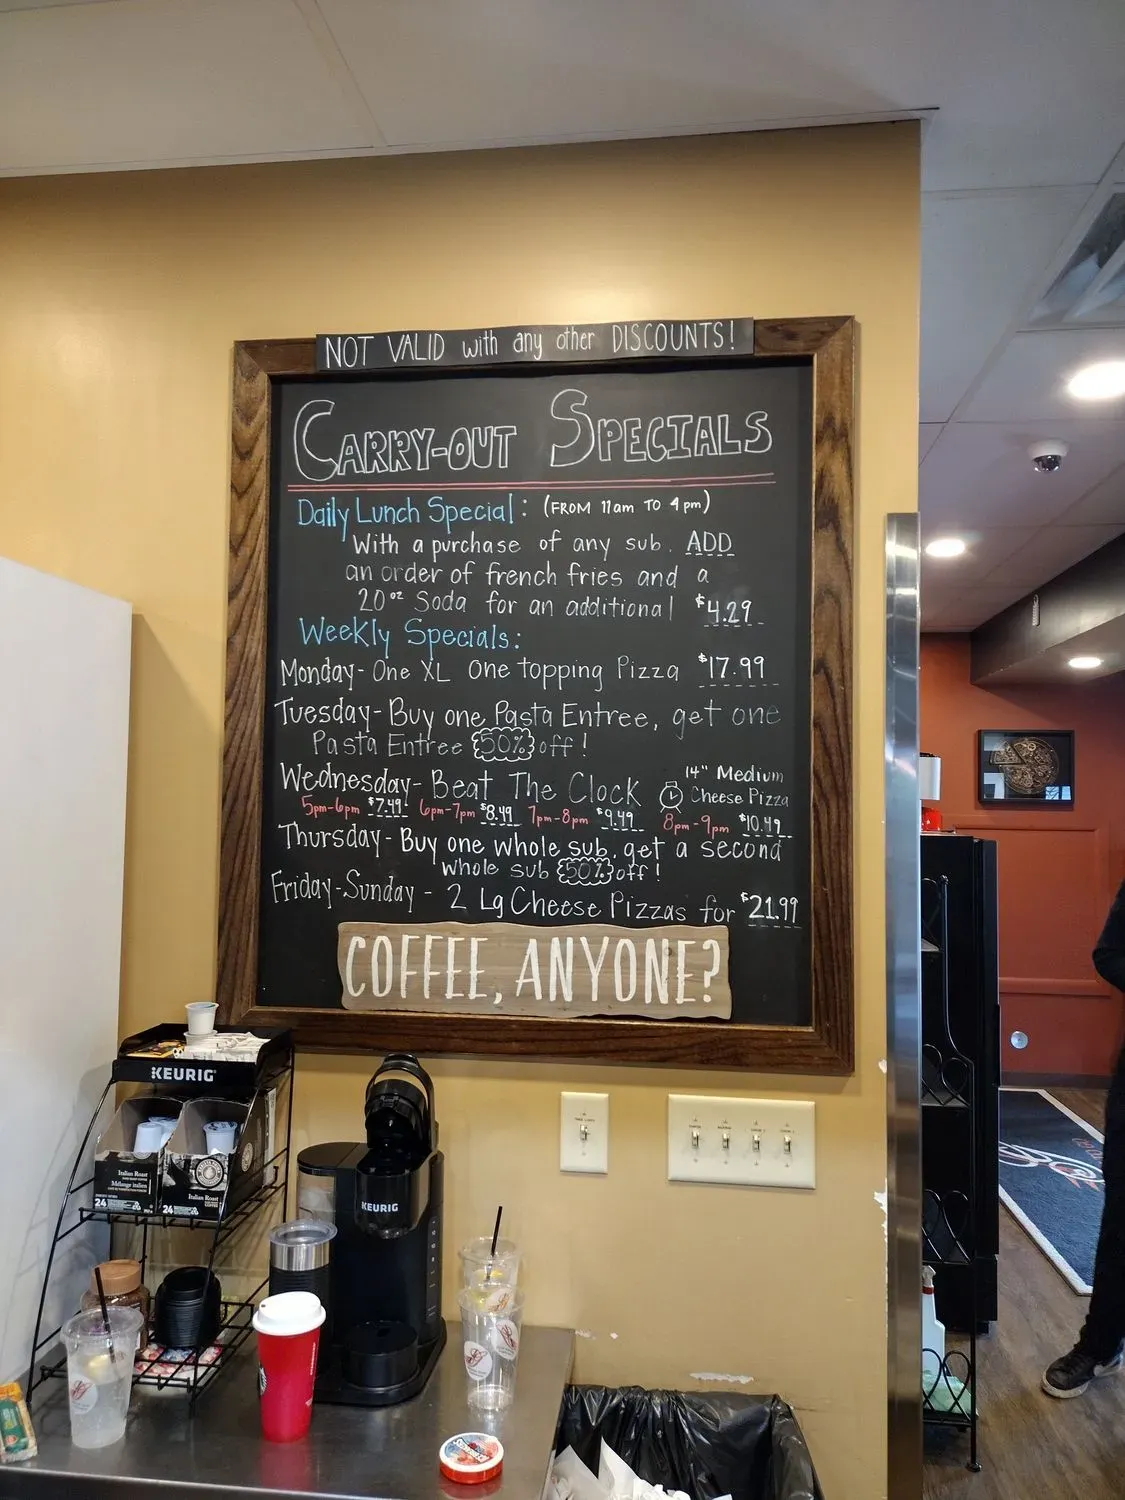 NOT VALID with any other DISCOUNTS!
CARRY-OUT SPECIALS
Daily Lunch Special: (FROM 11am TO 4pm)
With a purchase of any sub. ADD
an order of french fries and a
20oz Soda for an additional $4.29
Weekly Specials:
Monday- One XL One topping Pizza $17.99
Tuesday- Buy one Pasta Entree, get one
Pasta Entree 50% off!
Wednesday- Beat The Clock 14" Medium
Cheese Pizza
5pm-6pm $7.49 6pm-7pm $8.49 7pm-8pm $9.49 8pm-9pm $10.49
Thursday- Buy one whole sub, get a second
whole sub 50% off!
Friday-Sunday - 2 Lg Cheese Pizzas for $21.99
COFFEE, ANYONE?
KEURIG
Italian Roast
Mélange italien
24
Italian Roast
24
KEURIG